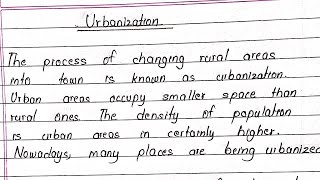 Urbanization
The process of changing rural areas
into town is known as urbanization.
Urban areas occupy smaller space than
rural ones. The density of population
is urban areas in certainly higher.
Nowadays, many places are being urbanized